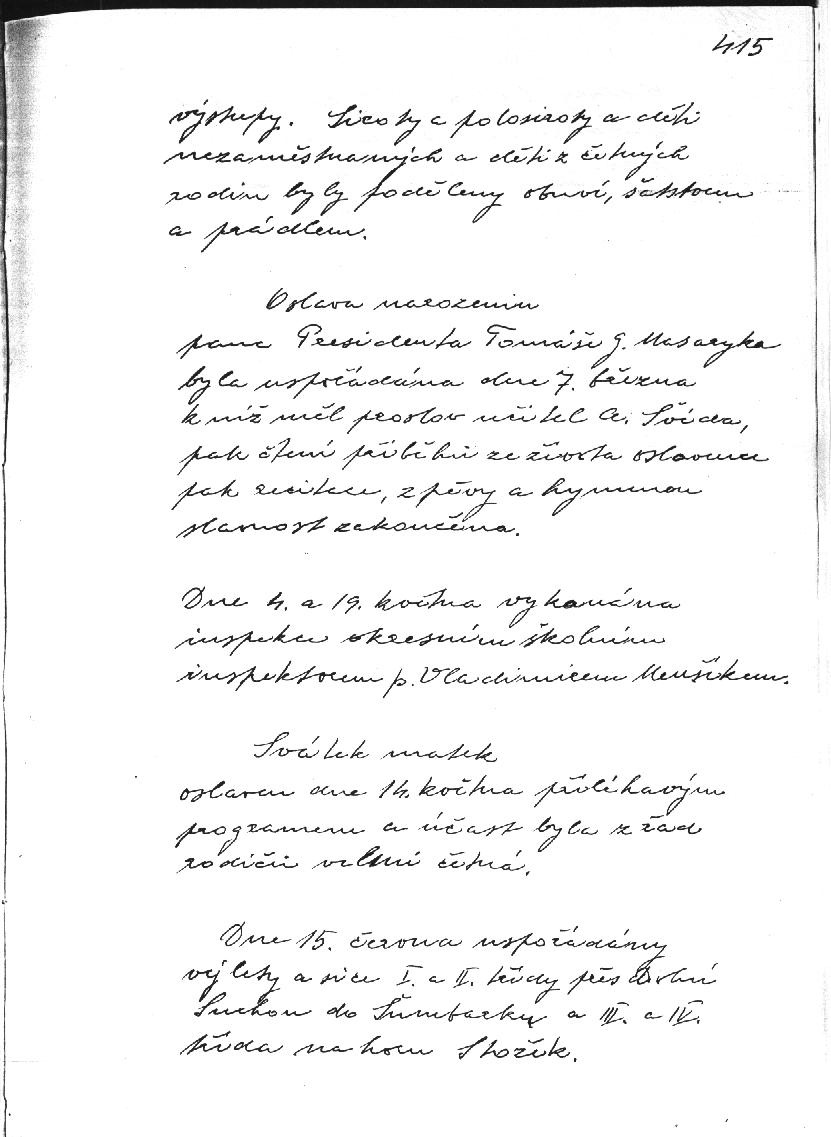 415
výstupy. Siroty a polosiroty a děti
nezaměstnaných a děti z četných
rodin byly poděleny obuví, šatstvem
a prádlem.
Oslava narozenin
pana Presidenta Tomáše G. Masaryka
byla uspořádána dne 7. března
k níž měl proslov učitel A. Švida,
pak čtení příběhů ze života oslavence
pak recitace, zpěvy a hymnou
slavnost zakončena.
Dne 4. a 19. května vykonána
inspekce okresním školním
inspektorem p. Vladimirem Menšíkem.
Svátek matek
oslaven dne 14. května přiléhavým
programem a účast byla z řad
rodičů velmi četná.
Dne 15. června uspořádány
výlety a sice I. a II. třídy přes Dolní
Suchou do Šumbarku a III. a IV.
třída na horu Stožek.